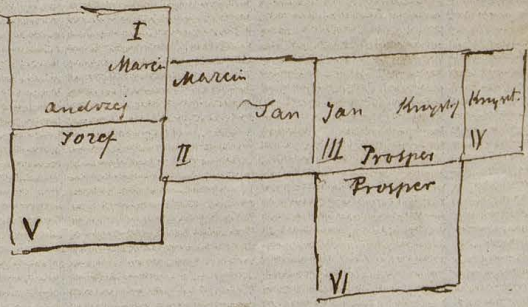 I
Marcin
Andrzej
Jozef
V
Marcin
Jan
II
Jan Krzysztof
III Prosper
Prosper
VI
Krzyszt.
IV